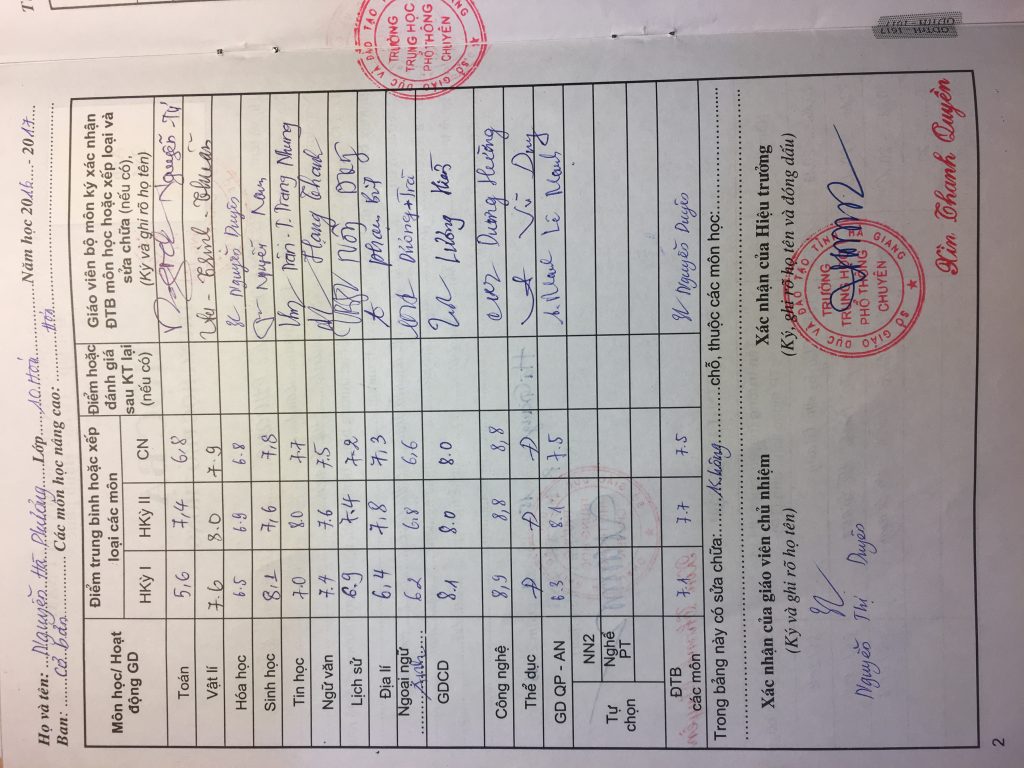 Họ và tên: ...Nguyễn Hà Phương...Lớp...10 Hoá...Năm học 2016...- 2017...
Ban: ...Các môn học nâng cao: ...Hoá...
Môn học/ Hoạt động GD
Điểm trung bình hoặc xếp loại các môn
HKỳ I HKỳ II CN
Điểm hoặc đánh giá sau KT lại (nếu có)
Giáo viên bộ môn ký xác nhận ĐTB môn học hoặc xếp loại và sửa chữa (nếu có), (Ký và ghi rõ họ tên)
Toán 5,6 7,4 6,8 Nguyễn Tú
Vật lí 7.6 8.0 7.9 Thuần
Hóa học 6.5 6.9 6.8 Nguyễn Duyên
Sinh học 8,1 7,6 7,8 Nguyễn Nam
Tin học 7.0 8.0 7.7 Trần T. Trang Nhung
Ngữ văn 7.4 7.6 7.5 Hạng Thanh
Lịch sử 6.9 7.4 7.2
Địa lí 6,4 7,8 7,3 Phạm
Ngoại ngữ 6.2 6.8 6,6
...Anh...
GDCD 8.1 8.0 8.0
Công nghệ 8,9 8,8 8,8 Dương Hường
Thể dục Đ Đ Đ Vũ Duy
GD QP - AN 6.3 8.1 7.5 Lê Mạnh
Tự chọn
NN2
Nghề PT
ĐTB các môn 7.1 7.7 7.5 Nguyễn Duyên
Trong bảng này có sửa chữa:...không...chỗ, thuộc các môn học:...
Xác nhận của giáo viên chủ nhiệm
(Ký và ghi rõ họ tên)
Nguyễn Thị Duyên
Xác nhận của Hiệu trưởng
(Ký, ghi rõ họ tên và đóng dấu)
SỞ GIÁO DỤC VÀ ĐÀO TẠO TỈNH GIANG
TRƯỜNG
TRUNG HỌC
PHỔ THÔNG
CHUYÊN
Xin Thanh Quyên
TRƯỜNG
TRUNG HỌC
PHỔ THÔNG
CHUYÊN
2